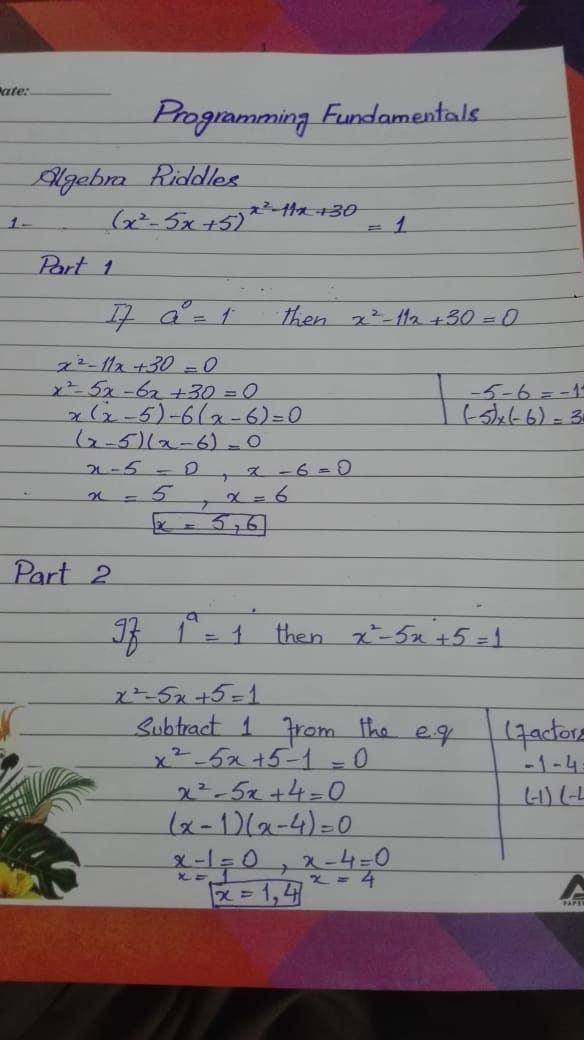 ate:
Programming Fundamentals
Algebra Riddles
1- (x²-5x+5)^x²-11x+30 = 1
Part 1
If a⁰ = 1 then x²-11x+30=0
x²-11x+30=0
x²-5x-6x+30=0 -5-6=-1
x(x-5)-6(x-6)=0 (-5)x(-6)=3
(x-5)(x-6)=0
x-5=0, x-6=0
x=5, x=6
x=5,6
Part 2
If 1ᵃ=1 then x²-5x+5=1
x²-5x+5=1
Subtract 1 from the eq (factors
x²-5x+5-1=0 -1-4
x²-5x+4=0 (-1)(-
(x-1)(x-4)=0
x-1=0, x-4=0
x=1 x=4
x=1,4
PAPE